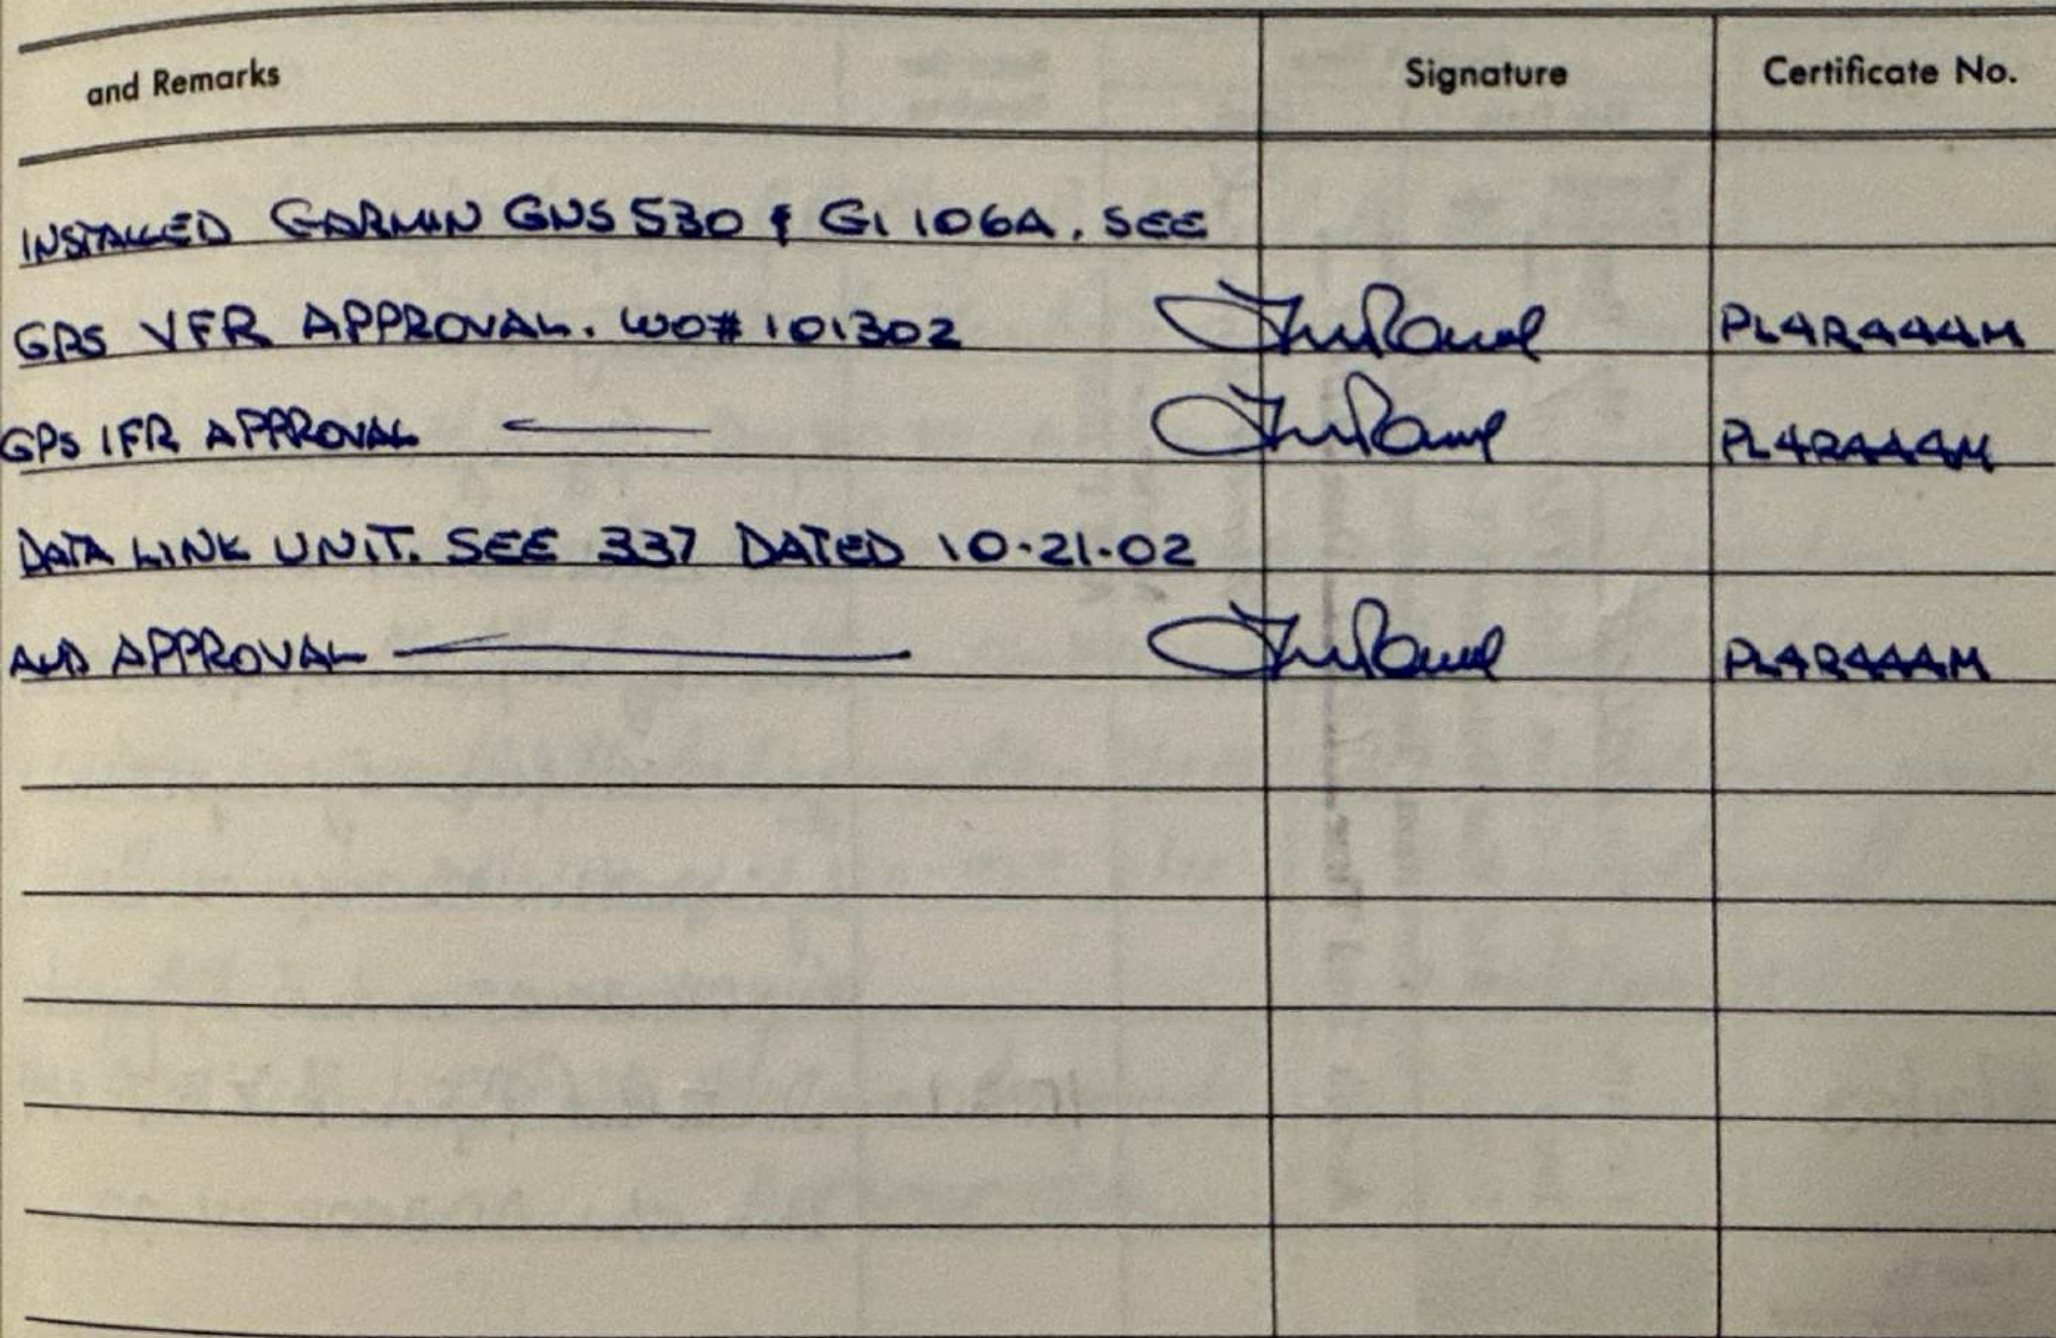 and Remarks Signature Certificate No.
INSTALLED GARMIN GNS 530 & GI 106A. SEE
GPS VFR APPROVAL. WO# 101302 PL4R444M
GPS IFR APPROVAL PL4R444M
DATA LINK UNIT. SEE 337 DATED 10-21-02
AND APPROVAL PL4R444M